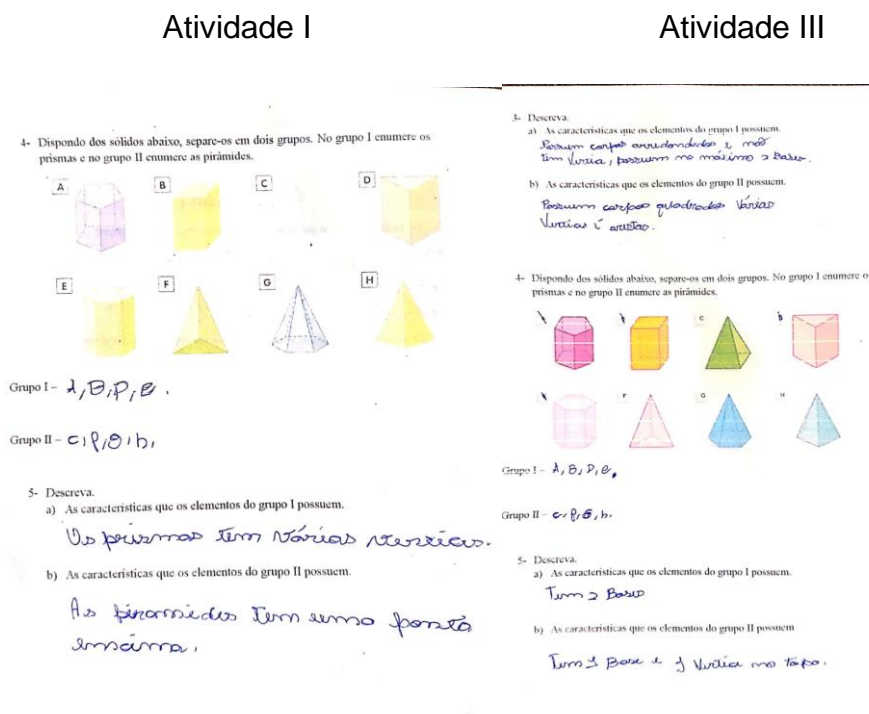 Atividade I
4- Dispondo dos sólidos abaixo, separe-os em dois grupos. No grupo I enumere os
prismas e no grupo II enumere as pirâmides.
A B C D
E F G H
Grupo I - A, B, D, E.
Grupo II - c, f, G, h,
5- Descreva.
a) As características que os elementos do grupo I possuem.
Os prismas tem várias
b) As características que os elementos do grupo II possuem.
As piramides Tem uma ponta
emcima.
Atividade III
3- Descreva.
a) As características que os elementos do grupo I possuem.
Possuem corpos arredondados e não
tem , possuem no máximo 2 Bases.
b) As características que os elementos do grupo II possuem.
Possuem corpos quadrados Várias
e arestas.
4- Dispondo dos sólidos abaixo, separe-os em dois grupos. No grupo I enumere o
prismas e no grupo II enumere as pirâmides.
C D
F G H
Grupo I - A, B, D, e.
Grupo II - c, f, G, h.
5- Descreva.
a) As características que os elementos do grupo I possuem.
Tem 2 Bases
b) As características que os elementos do grupo II possuem.
Tem 1 Base e 1 no topo.